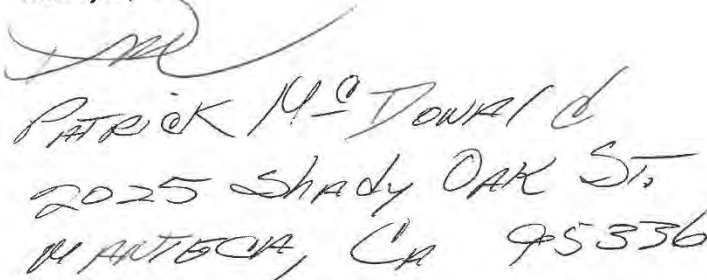 Patrick McDonald
2025 Shady Oak St.
Manteca, Ca 95336